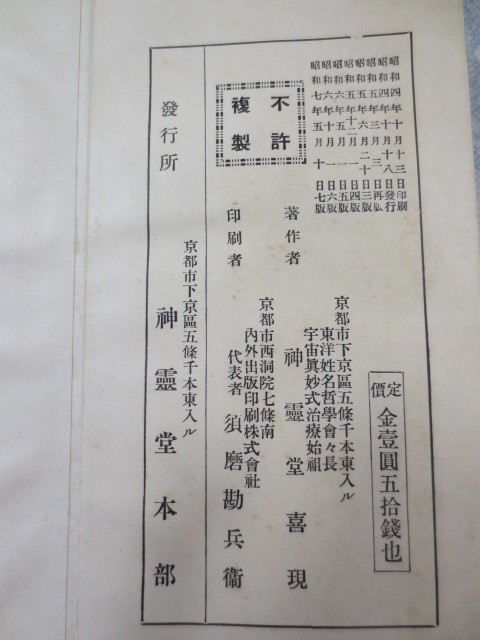 昭和四年十月十三日印刷
昭和四年十月十八日發行
昭和五年三月三日再版
昭和五年六月二十日三版
昭和五年十二月一日四版
昭和六年五月一日五版
昭和六年十月一日六版
昭和七年五月十日七版
不許
複製
定價 金壹圓五拾錢也
京都市下京區五條千本東入ル
東洋姓名哲學會々長
宇宙眞妙式治療始祖
著作者 神靈堂喜現
京都市西洞院七條南
內外出版印刷株式會社
印刷者 代表者 須磨勘兵衞
京都市下京區五條千本東入ル
發行所 神靈堂本部